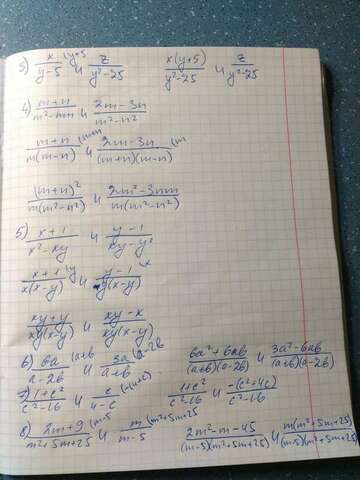 3) x/(y-5) (y+5 и z/(y²-25)   x(y+5)/(y²-25) и z/(y²-25)
4) (m+n)/(m²-mn) и (2m-3n)/(m²-n²)
(m+n)/(m(m-n)) (m+n и (2m-3n)/((m+n)(m-n)) (m
(m+n)²/(m(m²-n²)) и (2m²-3nm)/(m(m²-n²))
5) (x+1)/(x²-xy) и (y-1)/(xy-y²)
(x+1)/(x(x-y)) (y и (y-1)/(y(x-y)) (x
(xy+y)/(xy(x-y)) и (xy-x)/(xy(x-y))
6) 6a/(a-2b) (a+b и 3a/(a+b) (a-2b   (6a²+6ab)/((a+b)(a-2b)) и (3a²-6ab)/((a+b)(a-2b))
7) (1+c²)/(c²-16) и c/(4-c) (-(4+c)   (1+c²)/(c²-16) и -(c²+4c)/(c²-16)
8) (2m+9)/(m²+5m+25) (m-5 и m/(m-5) (m²+5m+25   (2m²-m-45)/((m-5)(m²+5m+25)) и m(m²+5m+25)/((m-5)(m²+5m+25))